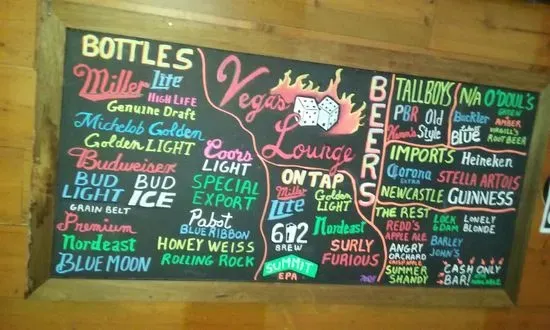 BOTTLES
Miller Lite
HIGH LIFE
Genuine Draft
Michelob Golden
Golden LIGHT
Budweiser
Coors LIGHT
BUD LIGHT
BUD ICE
SPECIAL EXPORT
GRAIN BELT
Premium
Nordeast
Pabst
BLUE RIBBON
HONEY WEISS
BLUE MOON
ROLLING ROCK
Vegas
Lounge
ON TAP
Miller Lite
Golden LIGHT
612 BREW
Nordeast
SURLY FURIOUS
SUMMIT
EPA
BEERS
TALLBOYS
PBR
Old Style
Hamm's
N/A
O'DOUL'S
GREEN
AMBER
Buckler
BLUE
ROOT BEER
IMPORTS
Heineken
Corona
EXTRA
STELLA ARTOIS
NEWCASTLE
GUINNESS
THE REST
REDD'S
APPLE ALE
LOCK & DAM
LONELY BLONDE
ANGRY ORCHARD
CRISP APPLE
BARLEY JOHN'S
SUMMER SHANDY
CASH ONLY BAR!
AVAILABLE